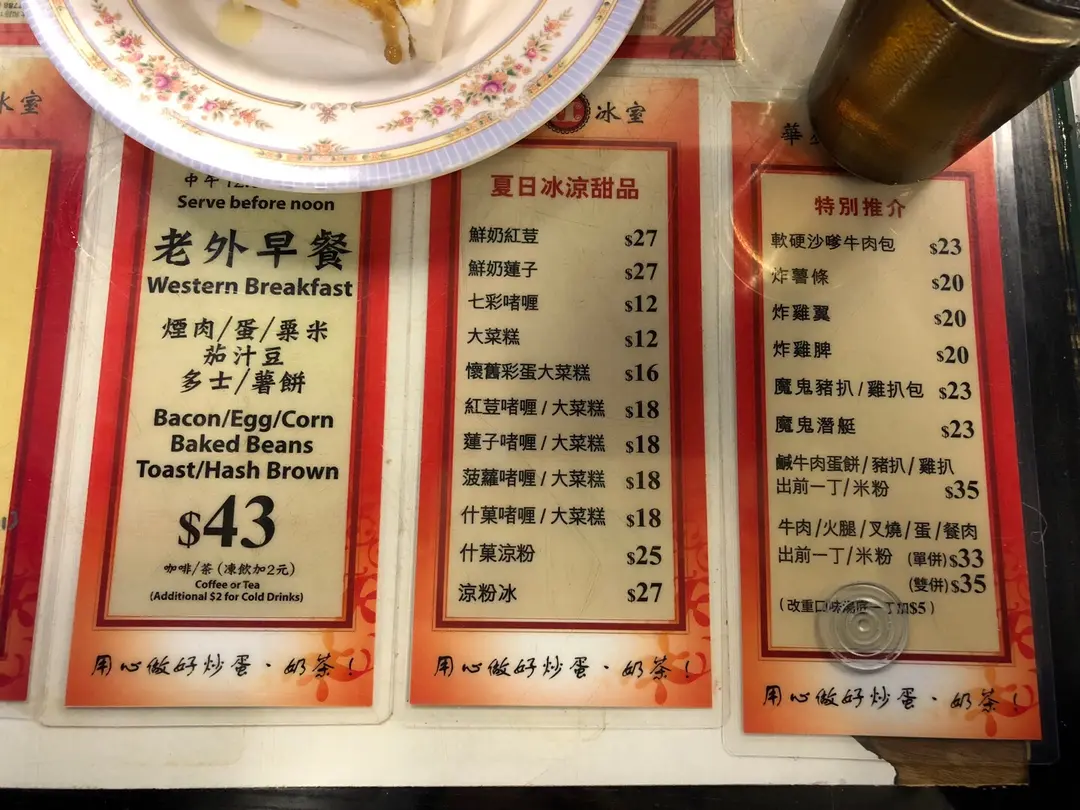 冰室
中午12
Serve before noon
老外早餐
Western Breakfast
煙肉/蛋/粟米
茄汁豆
多士/薯餅
Bacon/Egg/Corn
Baked Beans
Toast/Hash Brown
$43
咖啡/茶 (凍飲加2元)
Coffee or Tea
(Additional $2 for Cold Drinks)
用心做好炒蛋、奶茶!
冰室
夏日冰涼甜品
鮮奶紅荳 $27
鮮奶蓮子 $27
七彩啫喱 $12
大菜糕 $12
懷舊彩蛋大菜糕 $16
紅荳啫喱/大菜糕 $18
蓮子啫喱/大菜糕 $18
菠蘿啫喱/大菜糕 $18
什菓啫喱/大菜糕 $18
什菓涼粉 $25
涼粉冰 $27
用心做好炒蛋、奶茶!
華
特別推介
軟硬沙嗲牛肉包 $23
炸薯條 $20
炸雞翼 $20
炸雞脾 $20
魔鬼豬扒/雞扒包 $23
魔鬼潛艇 $23
鹹牛肉蛋餅/豬扒/雞扒
出前一丁/米粉 $35
牛肉/火腿/叉燒/蛋/餐肉
出前一丁/米粉 (單併)$33
(雙併)$35
(改重口味湯底一丁加$5)
用心做好炒蛋、奶茶!